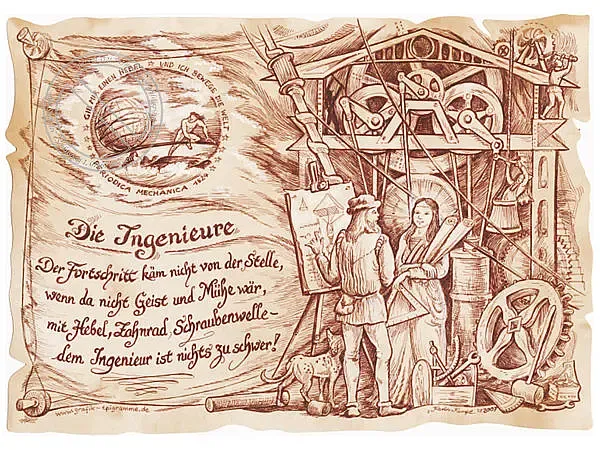 GIB MIR EINEN HEBEL * UND ICH BEWEGE DIE WELT *
PERIODICA MECHANICA 1824
Die Ingenieure
Der Fortschritt käm nicht von der Stelle,
wenn da nicht Geist und Mühe wär,
mit Hebel, Zahnrad, Schraubenwelle-
dem Ingenieur ist nichts zu schwer!
www.grafik-epigramme.de